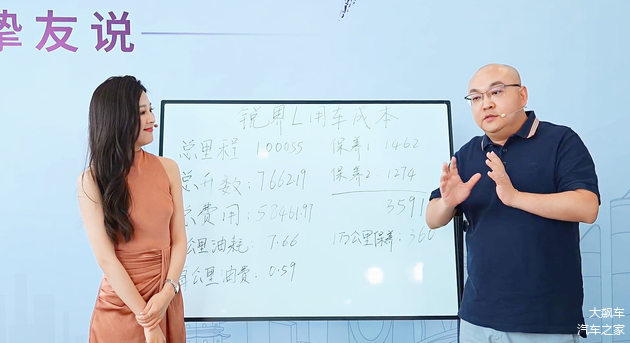 挚友说
锐界L用车成本
总里程 100055
保养1 1462
总升数:7662.19
保养2 1274
总费用:58461.97
3591
公里油耗:7.66
1万公里保养:360
每公里油费:0.59
大飙车
汽车之家